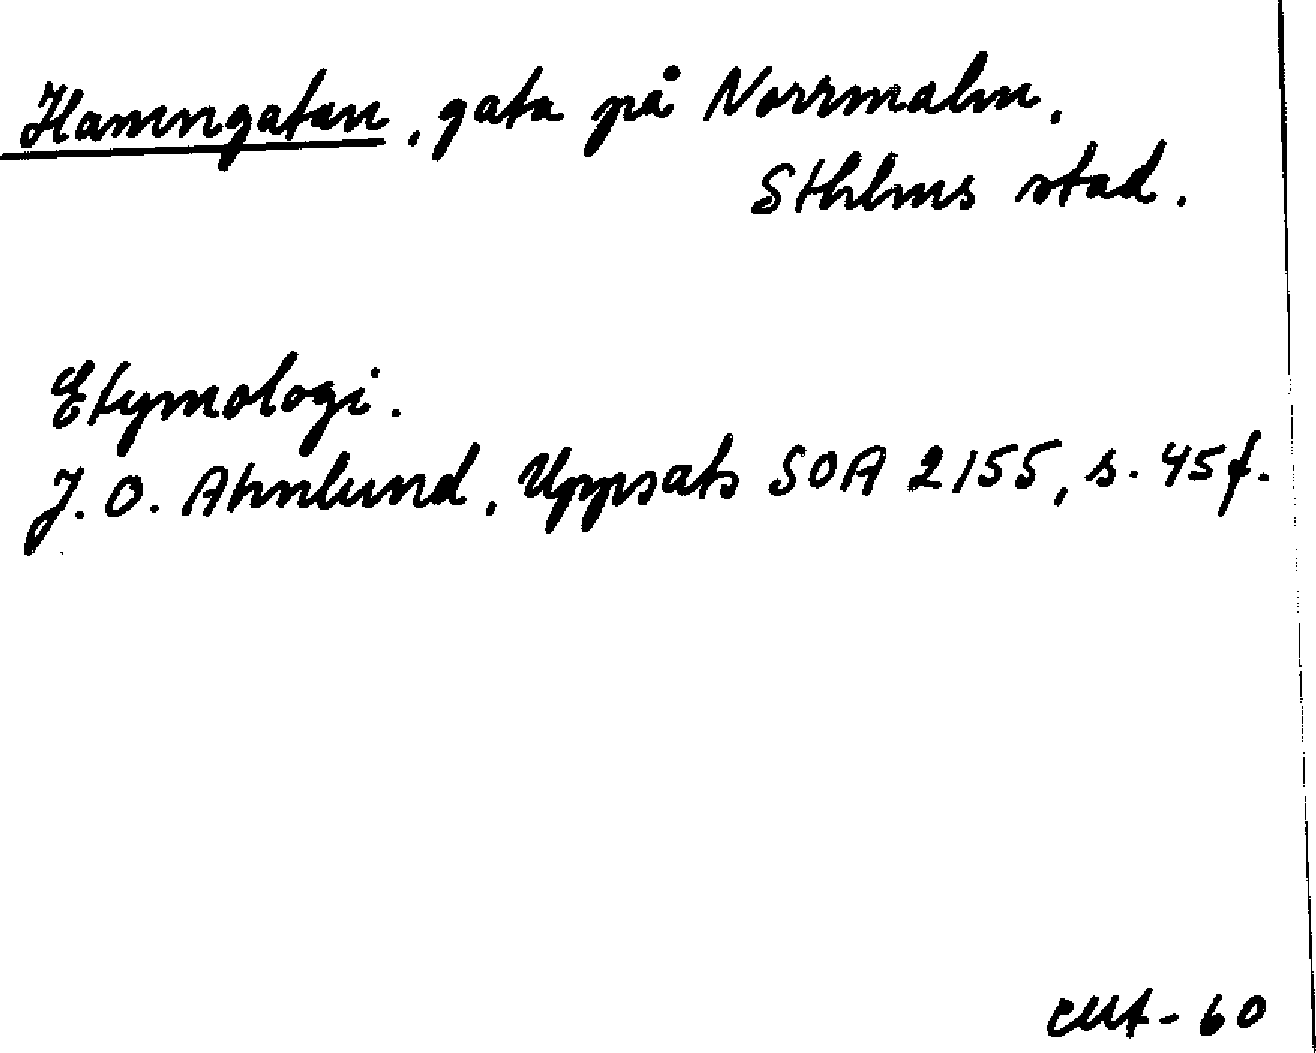 Hamngatan, gata på Norrmalm,
Sthlms stad.
Etymologi.
J. O. Ahnlund, Uppsats SOA 2155, s. 45 f.
60